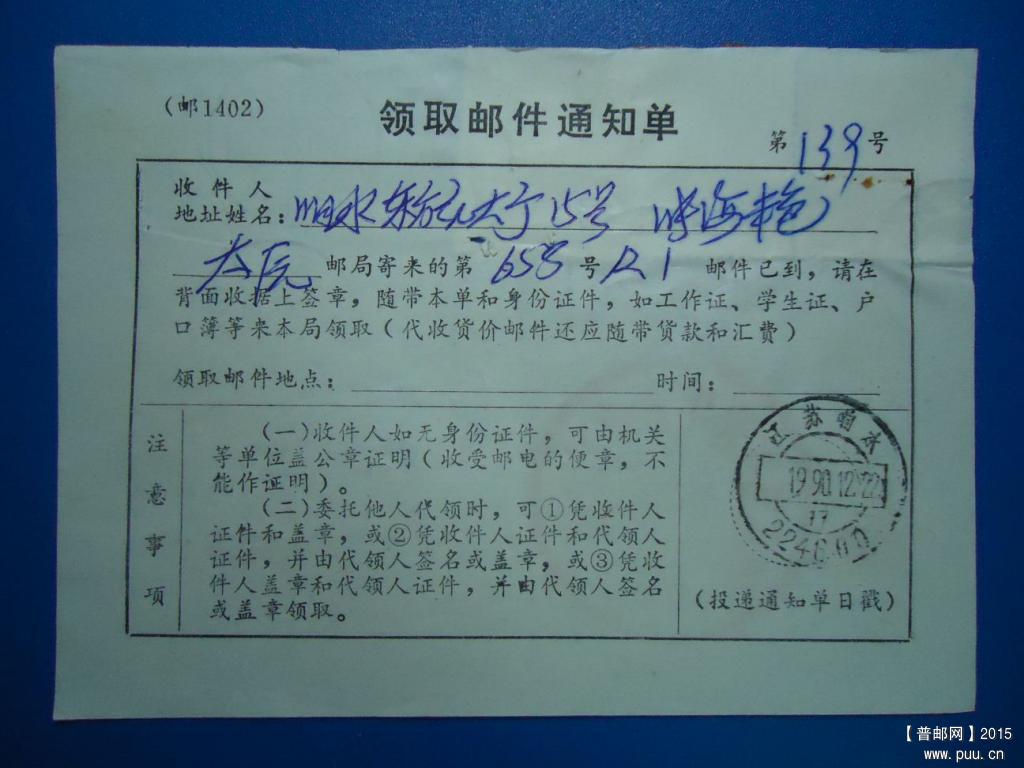 (邮1402)
领取邮件通知单
第139号
收件人
地址姓名:响水
邮局寄来的第 658 号 邮件已到,请在
背面收据上签章,随带本单和身份证件,如工作证、学生证、户
口簿等来本局领取(代收货价邮件还应随带货款和汇费)
领取邮件地点: 时间:
注意事项
(一)收件人如无身份证件,可由机关
等单位盖公章证明(收受邮电的便章,不
能作证明)。
(二)委托他人代领时,可①凭收件人
证件和盖章,或②凭收件人证件和代领人
证件,并由代领人签名或盖章,或③凭收
件人盖章和代领人证件,并由代领人签名
或盖章领取。
江苏响水
1990.12.22
17
(投递通知单日戳)
【普邮网】2015
www.puu.cn